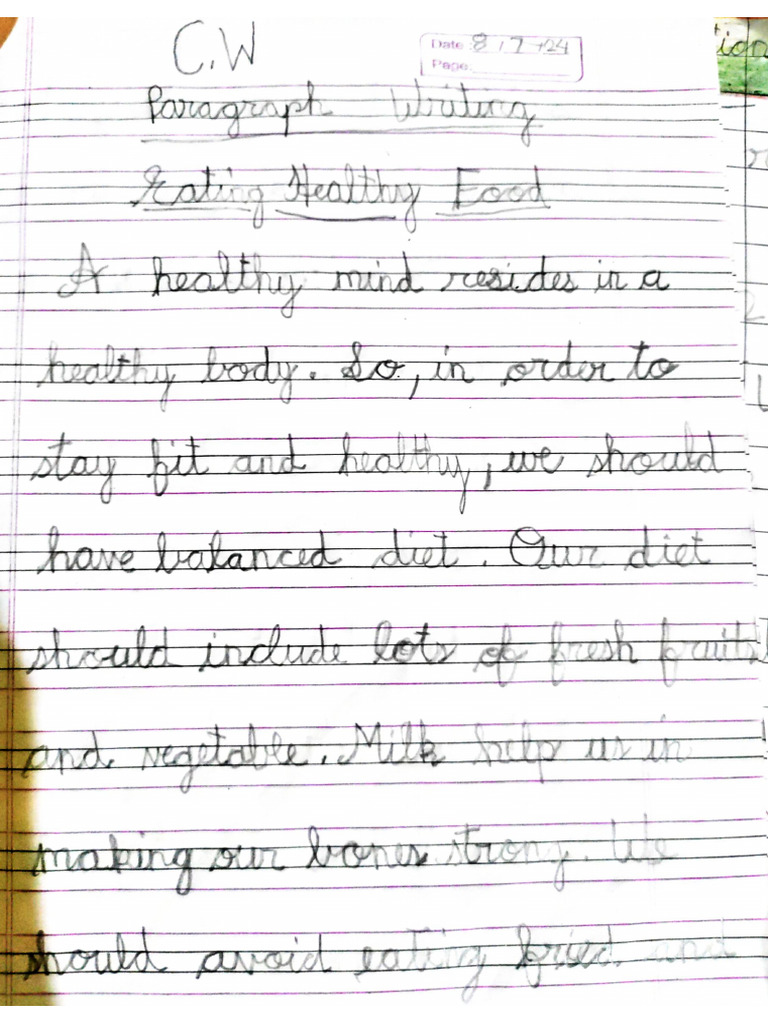 C.W
Date 8/7/24
Page
tion
Paragraph Writing
Eating Healthy Food
A healthy mind resides in a
healthy body. So, in order to
stay fit and healthy, we should
have balanced diet. Our diet
should include lots of fresh fruits
and vegetable. Milk help us in
making our bones strong. We
should avoid eating fried and